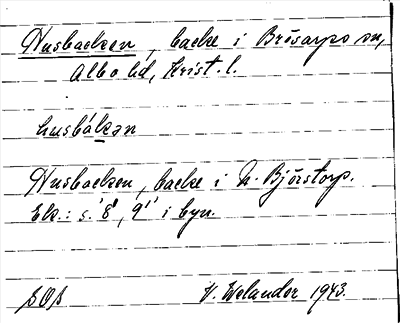 Husbacken, backe i Brösarps sn,
Albo hd, Krist. l.
husbákən
Husbacken, backe i N. Björstorp.
Ek.: s. 8¹, 9¹¹ i byn.
SOB V. Welander 1943.